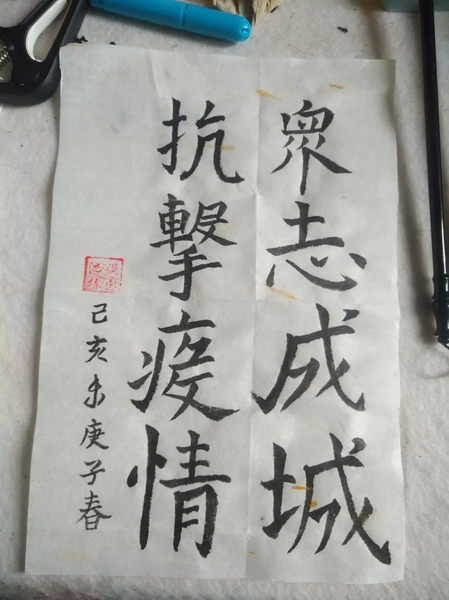 眾志成城
抗擊疫情
己亥末庚子春